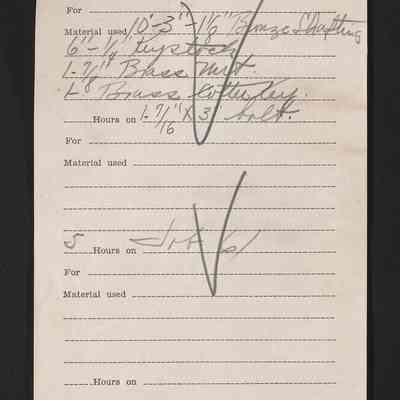 For
Material used 10'-3"-1 1/8" Bronze Shafting
6"-1/4" Keystock
1-7/8" Brass Nut.
1- Brass Cotter Key.
Hours on 1-7/16" X 3" bolt.
For
Material used
5 Hours on Job
For
Material used
Hours on